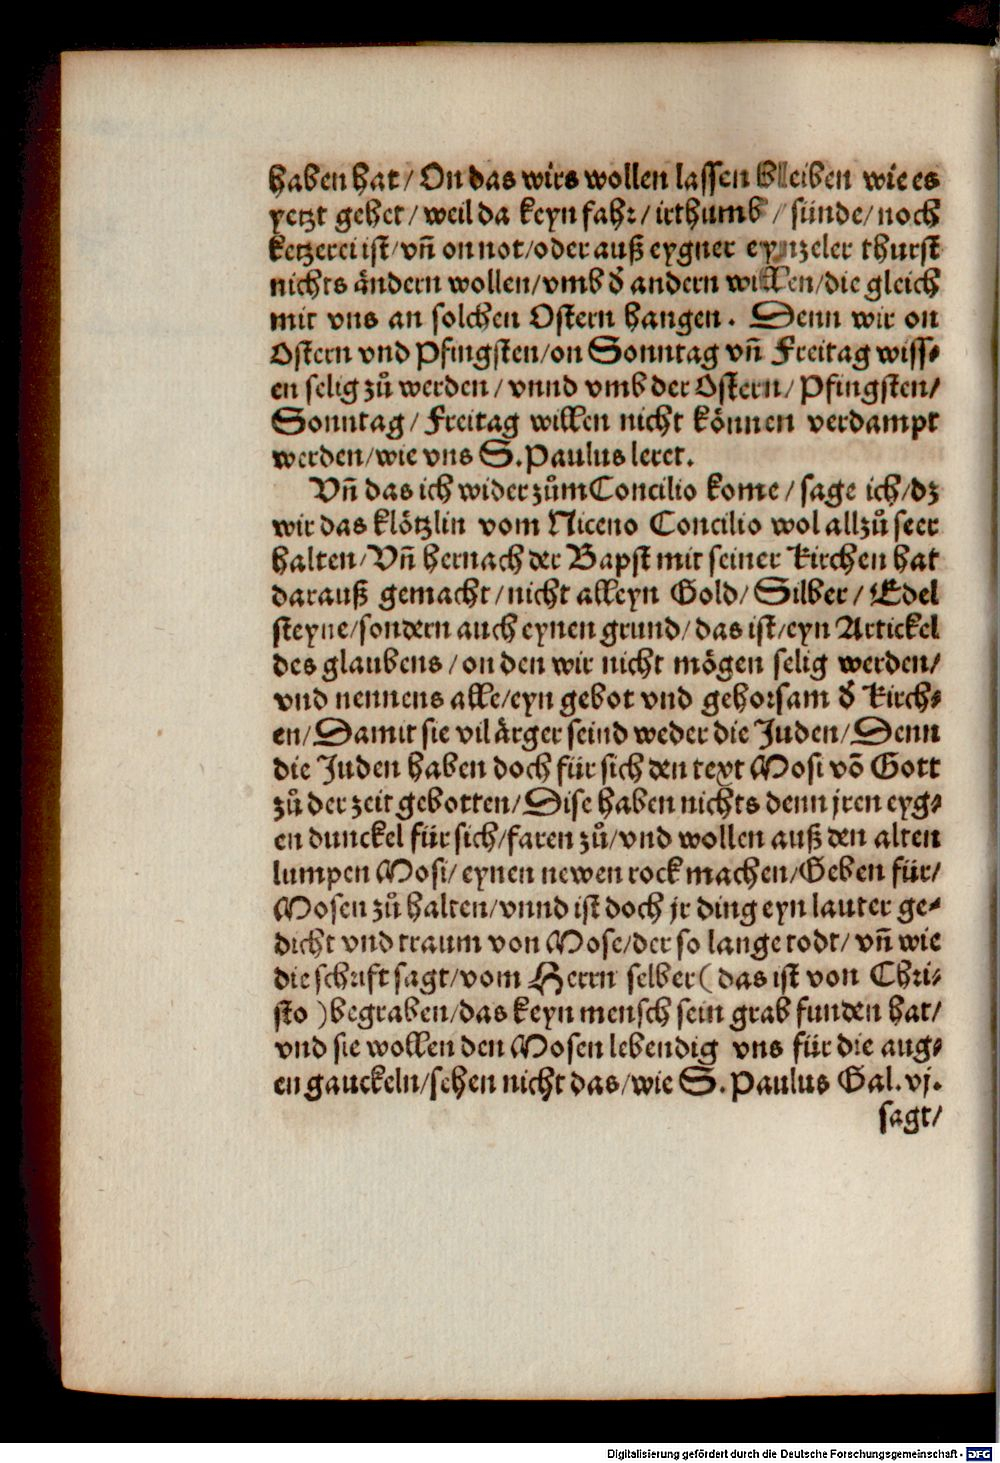 haben hat/ On das wirs wollen lassen bleiben wie es
yetzt gehet/ weil da keyn fahr/ irthumb/ sünde/ noch
ketzerei ist/ vñ on not/ oder auß eygner eynzeler thurst
nichts ändern wollen/ vmb d' andern willen/ die gleich
mit vns an solchen Ostern hangen. Denn wir on
Ostern vnd Pfingsten/ on Sonntag vñ Freitag wiss⸗
en selig zů werden/ vnnd vmb der Ostern/ Pfingsten/
Sonntag/ Freitag willen nicht können verdampt
werden/ wie vns S. Paulus leret.
Vñ das ich wider zům Concilio kome/ sage ich/ dz
wir das klötzlin vom Niceno Concilio wol allzů seer
halten/ Vñ hernach der Bapst mit seiner Kirchen hat
darauß gemacht/ nicht alleyn Gold/ Silber/ Edel
steyne/ sondern auch eynen grund/ das ist/ eyn Artickel
des glaubens/ on den wir nicht mögen selig werden/
vnd nennens alle/ eyn gebot vnd gehorsam d' Kirch⸗
en/ Damit sie vil ärger seind weder die Juden/ Denn
die Juden haben doch für sich den text Mosi võ Gott
zů der zeit gebotten/ Dise haben nichts denn jren eyg⸗
en dunckel für sich/ faren zů/ vnd wollen auß den alten
lumpen Mosi/ eynen newen rock machen/ Geben für/
Mosen zů halten/ vnnd ist doch jr ding eyn lauter ge⸗
dicht vnd traum von Mose/ der so lange todt/ vñ wie
die schrift sagt/ vom Herrn selber (das ist von Chri⸗
sto) begraben/ das keyn mensch sein grab funden hat/
vnd sie wollen den Mosen lebendig vns für die aug⸗
en gauckeln/ sehen nicht das/ wie S. Paulus Gal. vj.
sagt/
Digitalisierung gefördert durch die Deutsche Forschungsgemeinschaft - DFG